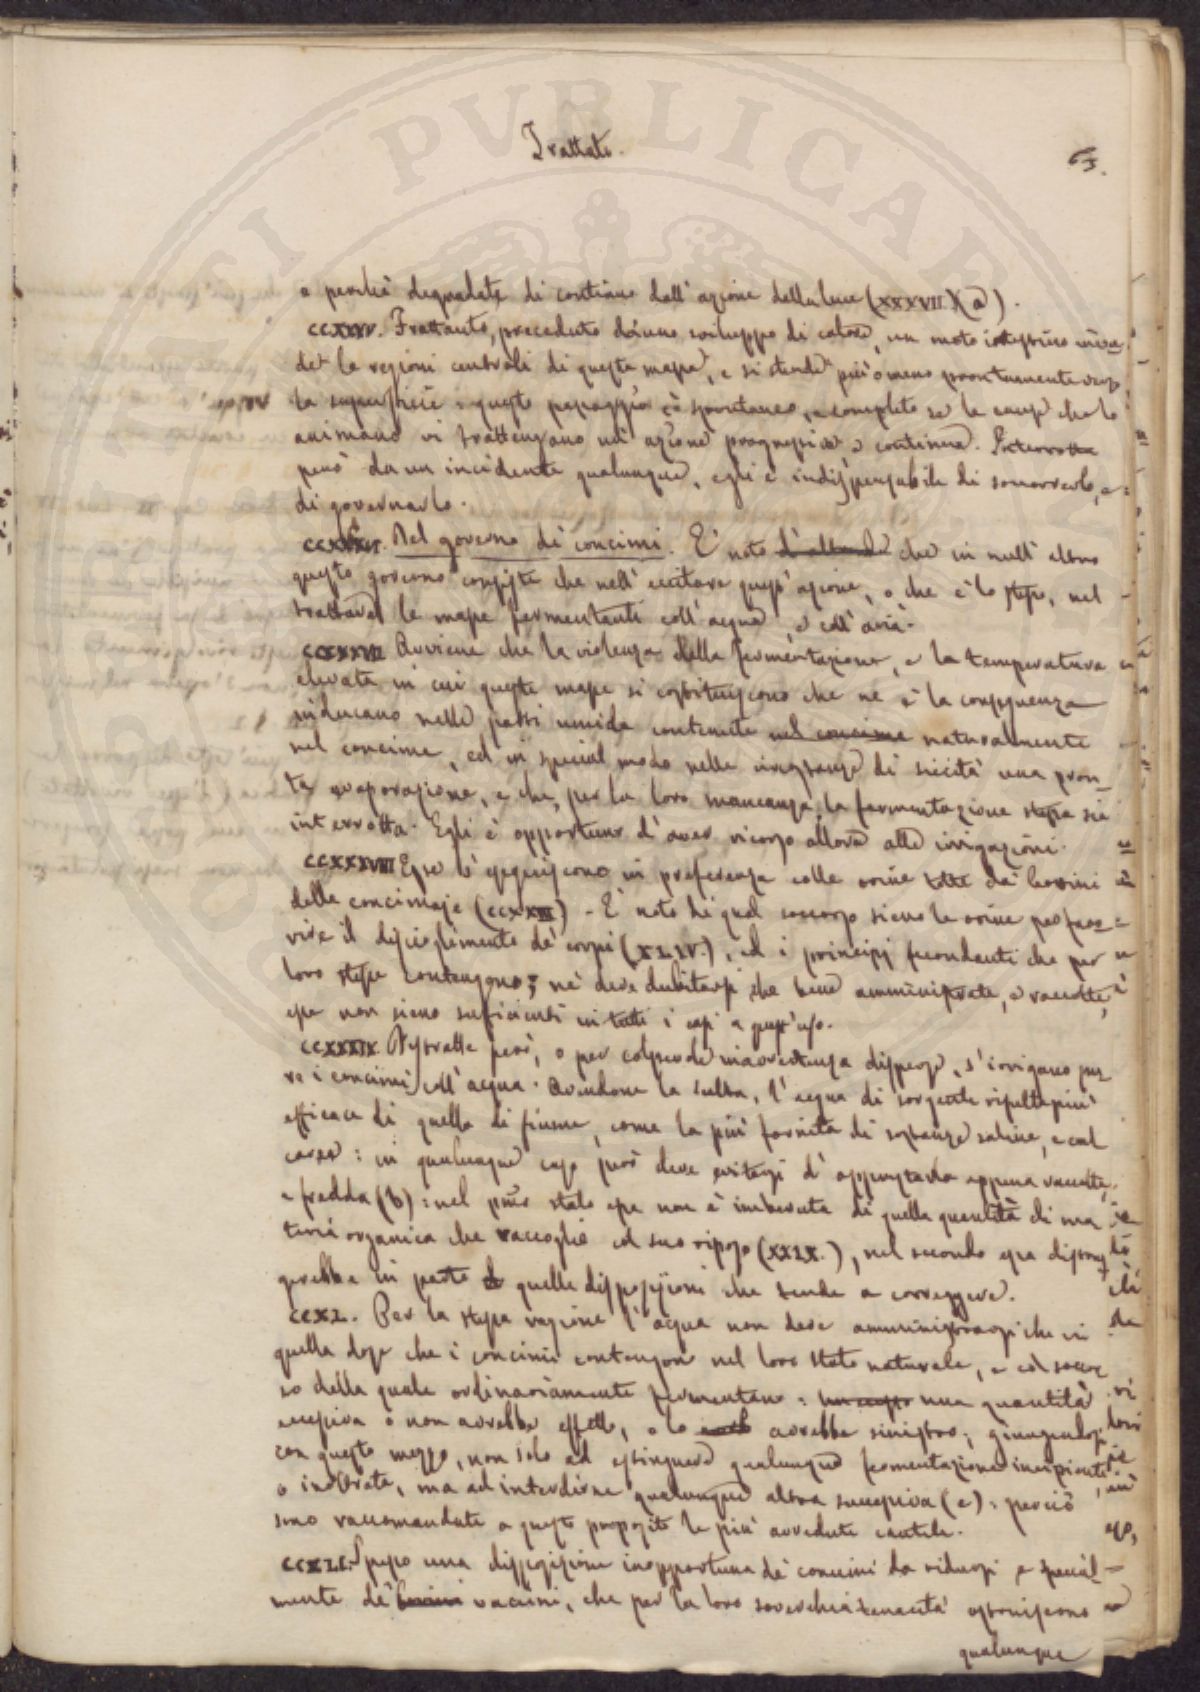 Trattato.
63.
e perchè degradate di continuo dall'azione della luce (XXXVII)(a).
CCXXXV. Frattanto, preceduto da uno sviluppo di calore, un moto intestino inva-
de le regioni centrali di questa massa, e si stende più o meno prontamente verso
la superficie: questo passaggio è spontaneo, e completo se le cause che lo
animano vi trattengano un'azione progressiva, e continua. Interrotta
però da un incidente qualunque, egli è indispensabile di soccorrerlo, e
di governarlo.
Del governo di concimi. È noto che in null'altro
questo governo consiste che nell'eccitare quest'azione, o che è lo stesso, nel
trattare le masse fermentanti coll'acqua, e coll'aria.
CCXXXVII Avviene che la violenza della fermentazione, e la temperatura
elevata in cui queste masse si costituiscono che ne è la conseguenza
inducano nelle parti umide contenute nel concime naturalmente
nel concime, ed in special modo nelle circostanze di siccità una pron-
ta evaporazione, e che, per la loro mancanza, la fermentazione stessa sia
interrotta. Egli è opportuno d'aver ricorso allora alle irrigazioni.
CCXXXVIII Esse s'eseguiscono in preferenza colle orine tolte dai bottini
delle concimaje (CCXXIII) - È noto di qual soccorso sieno le orine per favo-
rire il discioglimento de' corpi (XLIV.), ed i principj fecondanti che per
loro stesse contengono; nè deve dubitarsi che bene amministrate, e raccolte,
esse non sieno sufficienti in tutti i casi a quest'uso.
CCXXXIX. però, o per colpevole inavvertenza disperse, s'irrigano pu-
re i concimi coll'acqua. Avendone la scelta, l'acqua di sorgente risulta più
efficace di quella di fiume, come la più fornita di sostanze saline, e cal
caree: in qualunque caso però deve evitarsi d'apprestarla appena raccolta,
e fredda (b): nel primo stato essa non è imbevuta di quella quantità di ma
teria organica che raccoglie col suo riposo (XXIX.), nel secondo essa distrug
gerebbe in parte quelle disposizioni che tende a correggere.
CCXL. Per la stessa ragione l'acqua non deve amministrarsi che in
quella dose che i concimi contengon nel loro stato naturale, e col soccor
so della quale ordinariamente fermentano: una quantità
eccessiva o non avrebbe effetto, o lo avrebbe sinistro; giungendosi
con questo mezzo, non solo ad estinguere qualunque fermentazione incipiente
o inoltrata, ma ad interdirne qualunque altra successiva (c): perciò
sono raccomandate a questo proposito le più avvedute cautele.
CCXLI. Spesso una disposizione inopportuna dei concimi da ridursi e special-
mente de' vaccini, che per la loro soverchia tenacità ostruiscono
qualunque